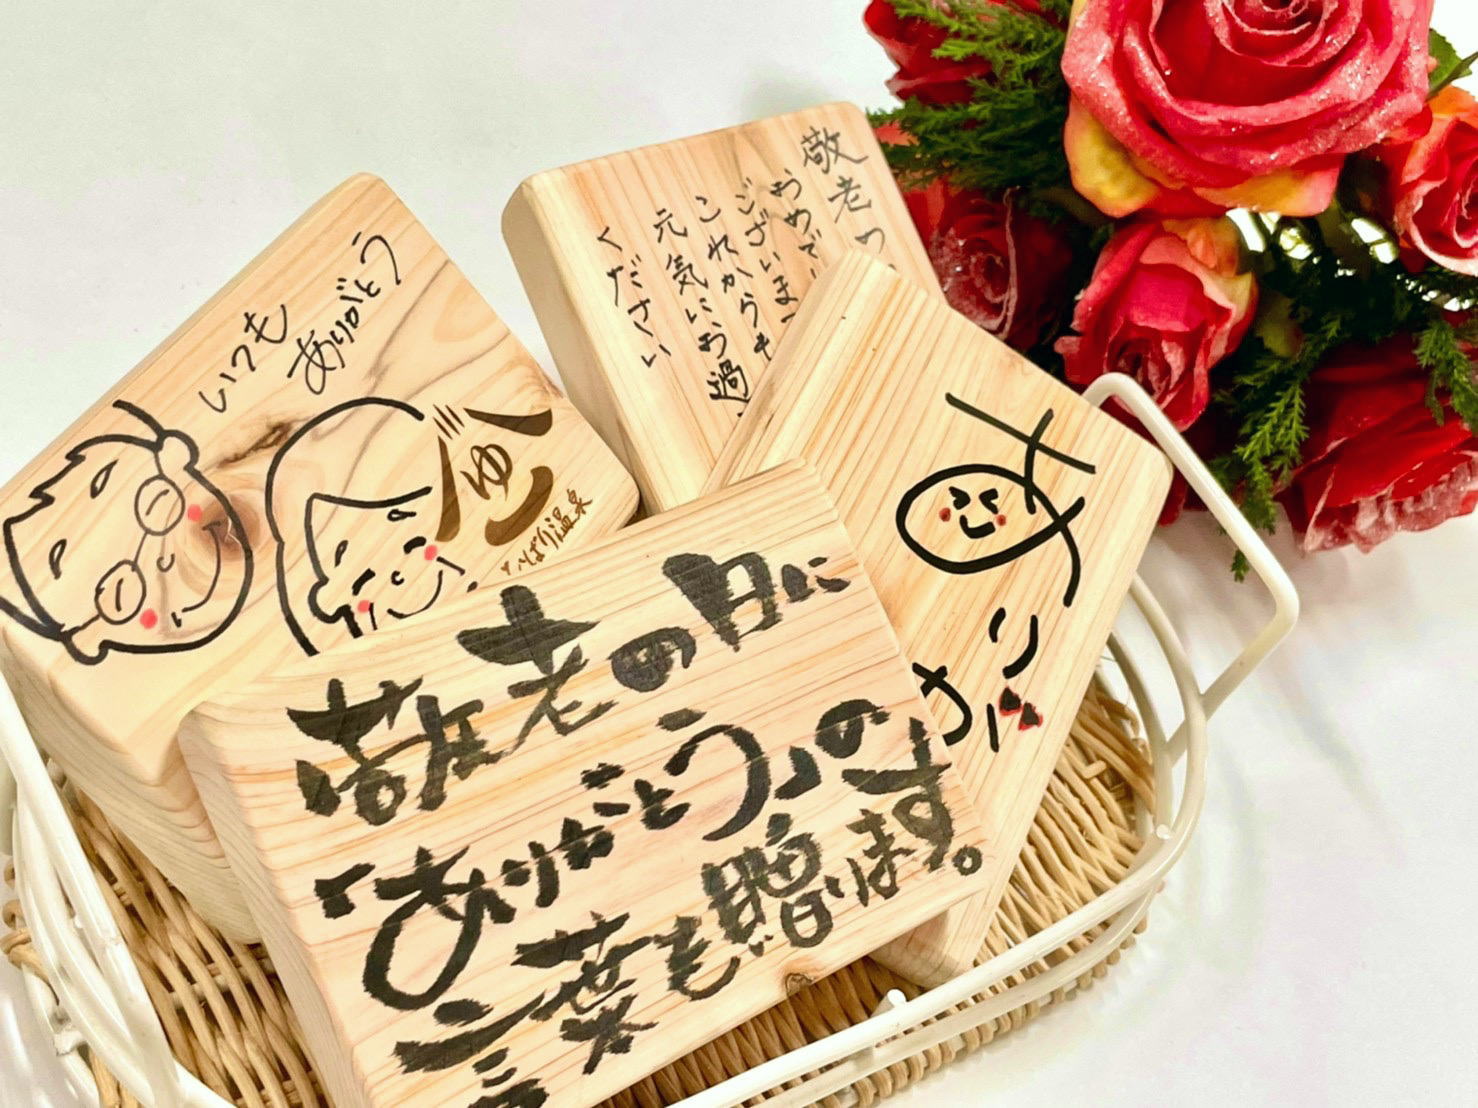 いつも
ありがとう
ゆ
ばり温泉
敬老の
おめで
ございま
これからも
元気にお過
ください
あ
り
が
敬老の日に
「ありがとう」の
言葉も贈ります。